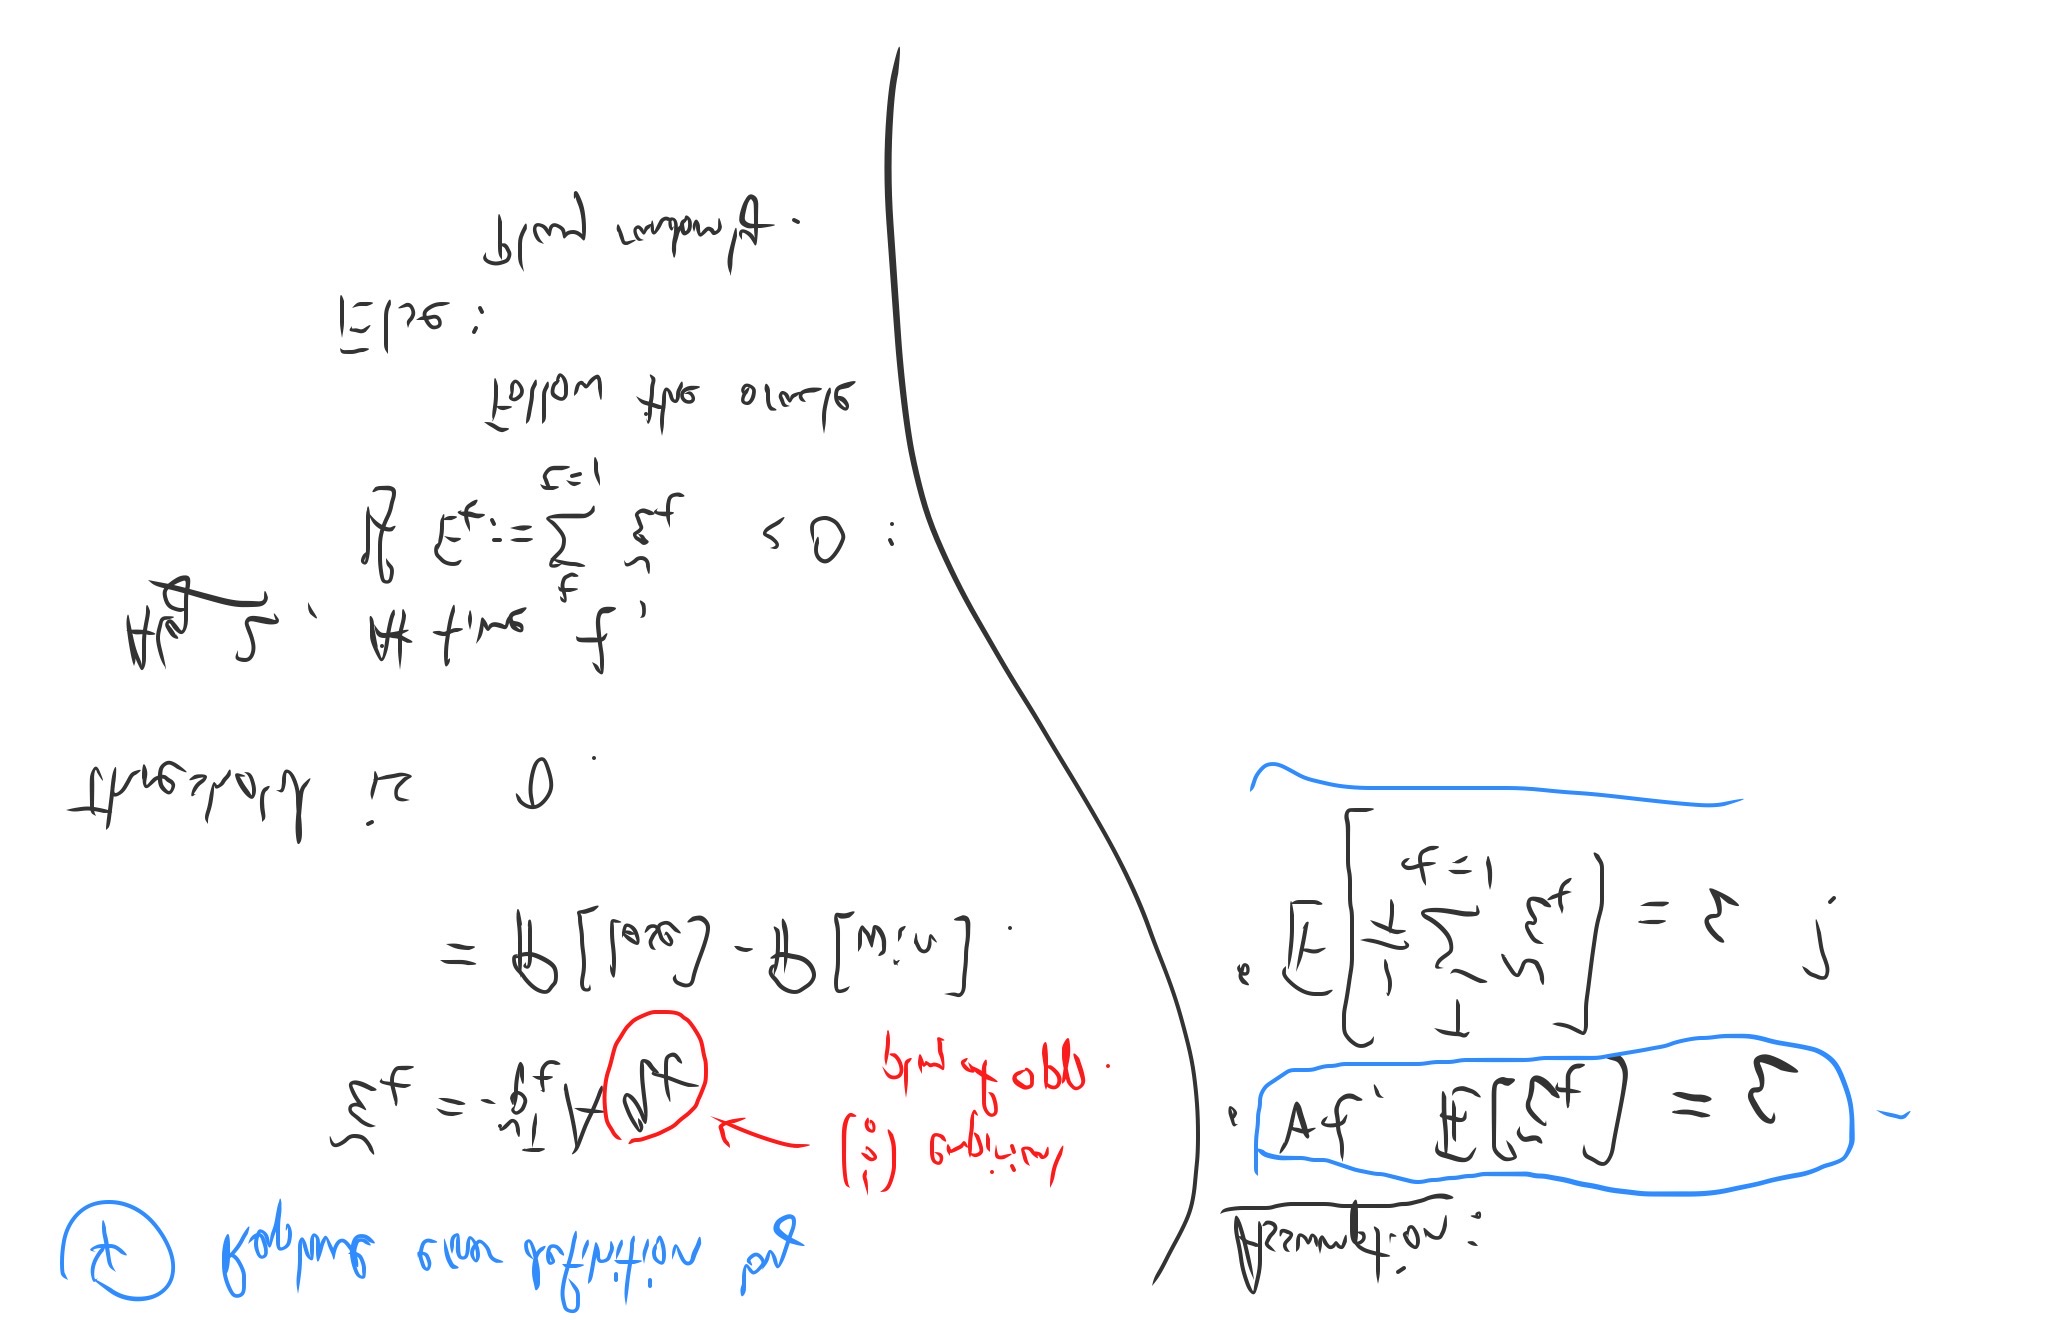 ④ Replace error definition by
ε̃_t = -p̃_t^T A q_t ← (1 0 0) empirical
play of opp.
= ℙ[lose] - ℙ[win].
Threshold is 0.
Alg 2, At time t,
If E_t := ∑_{τ=1}^{t} ε̃_t < 0 :
Follow the oracle
Else:
Play randomly.
Assumption:
• ∀t, 𝔼[ε̃_t] = ε
• 𝔼[1/T ∑_{t=1}^{T} ε̃_t] = ε ?